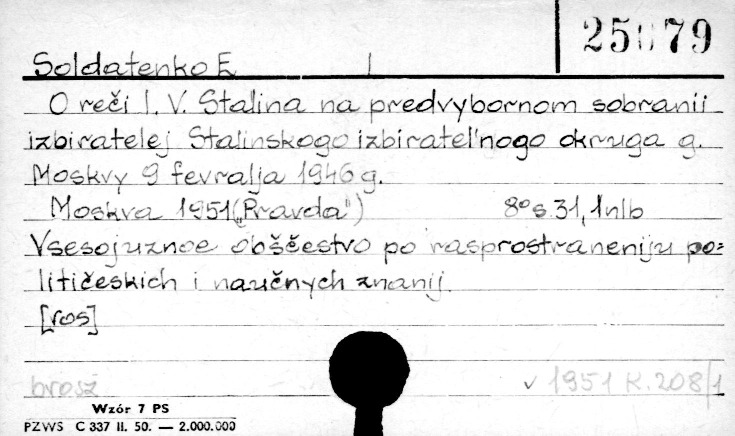 25679
Soldatenko E I
O reči I. V. Stalina na predvybornom sobranii
izbiratelej Stalinskogo izbiratel'nogo okruga g.
Moskvy 9 fevralja 1946 g.
Moskva 1951 („Pravda") 8° s. 31, 1 nlb
Vsesojuznoe obščestvo po rasprostraneniju po=
litičeskich i naučnych znanij.
[ros]
brosz v 1951 K. 208/1
Wzór 7 PS
PZWS C 337 II. 50. — 2.000.000